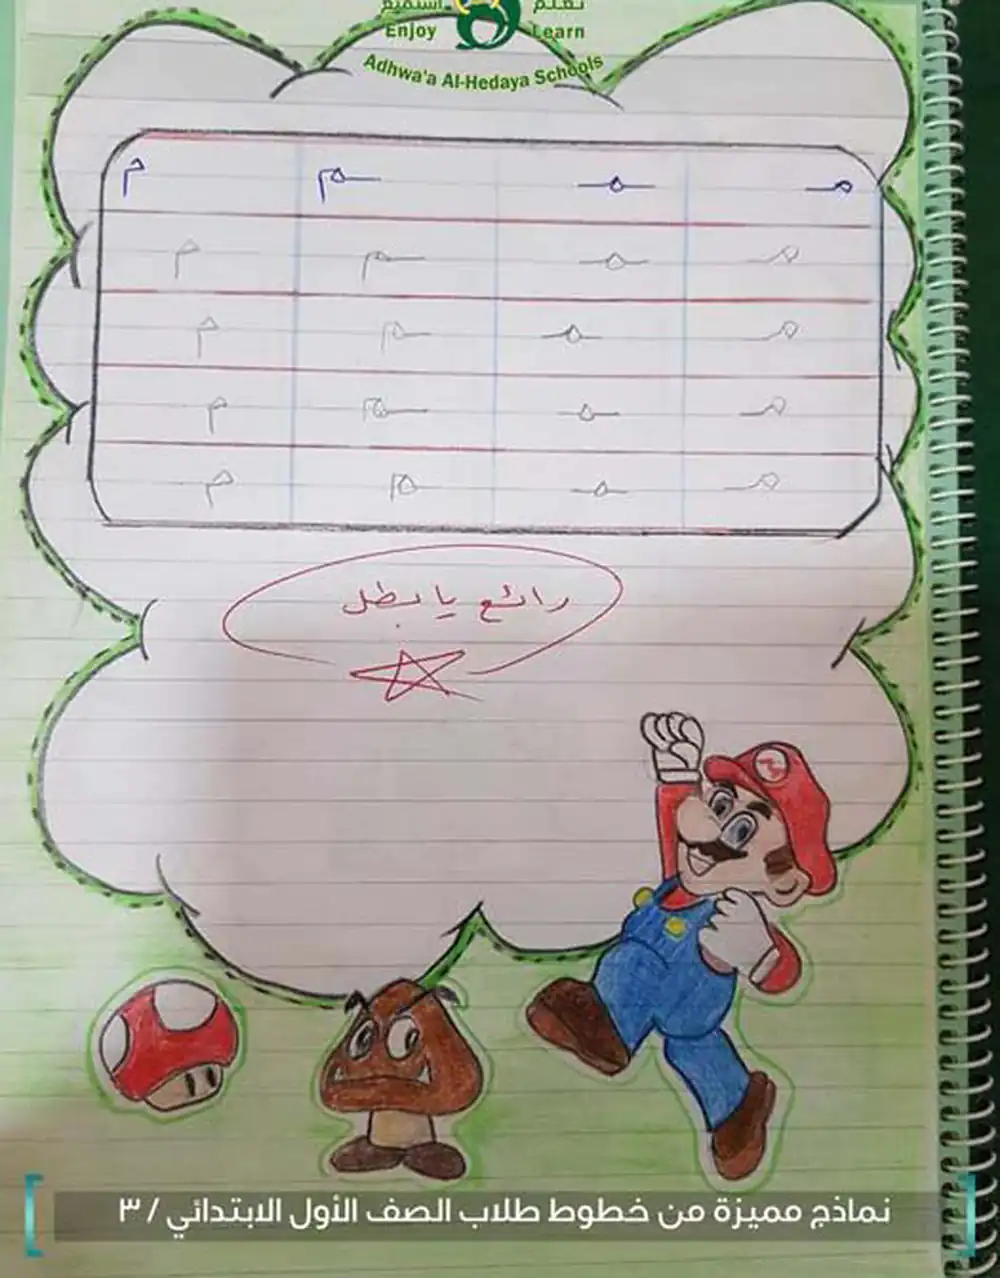 نتعلم استمتع
Enjoy Learn
Adhwa'a Al-Hedaya Schools
مـ ـمـ ـم م
مـ ـمـ ـم م
مـ ـمـ ـم م
مـ ـمـ ـم م
مـ ـمـ ـم م
رائع يا بطل
نماذج مميزة من خطوط طلاب الصف الأول الابتدائي / ٣